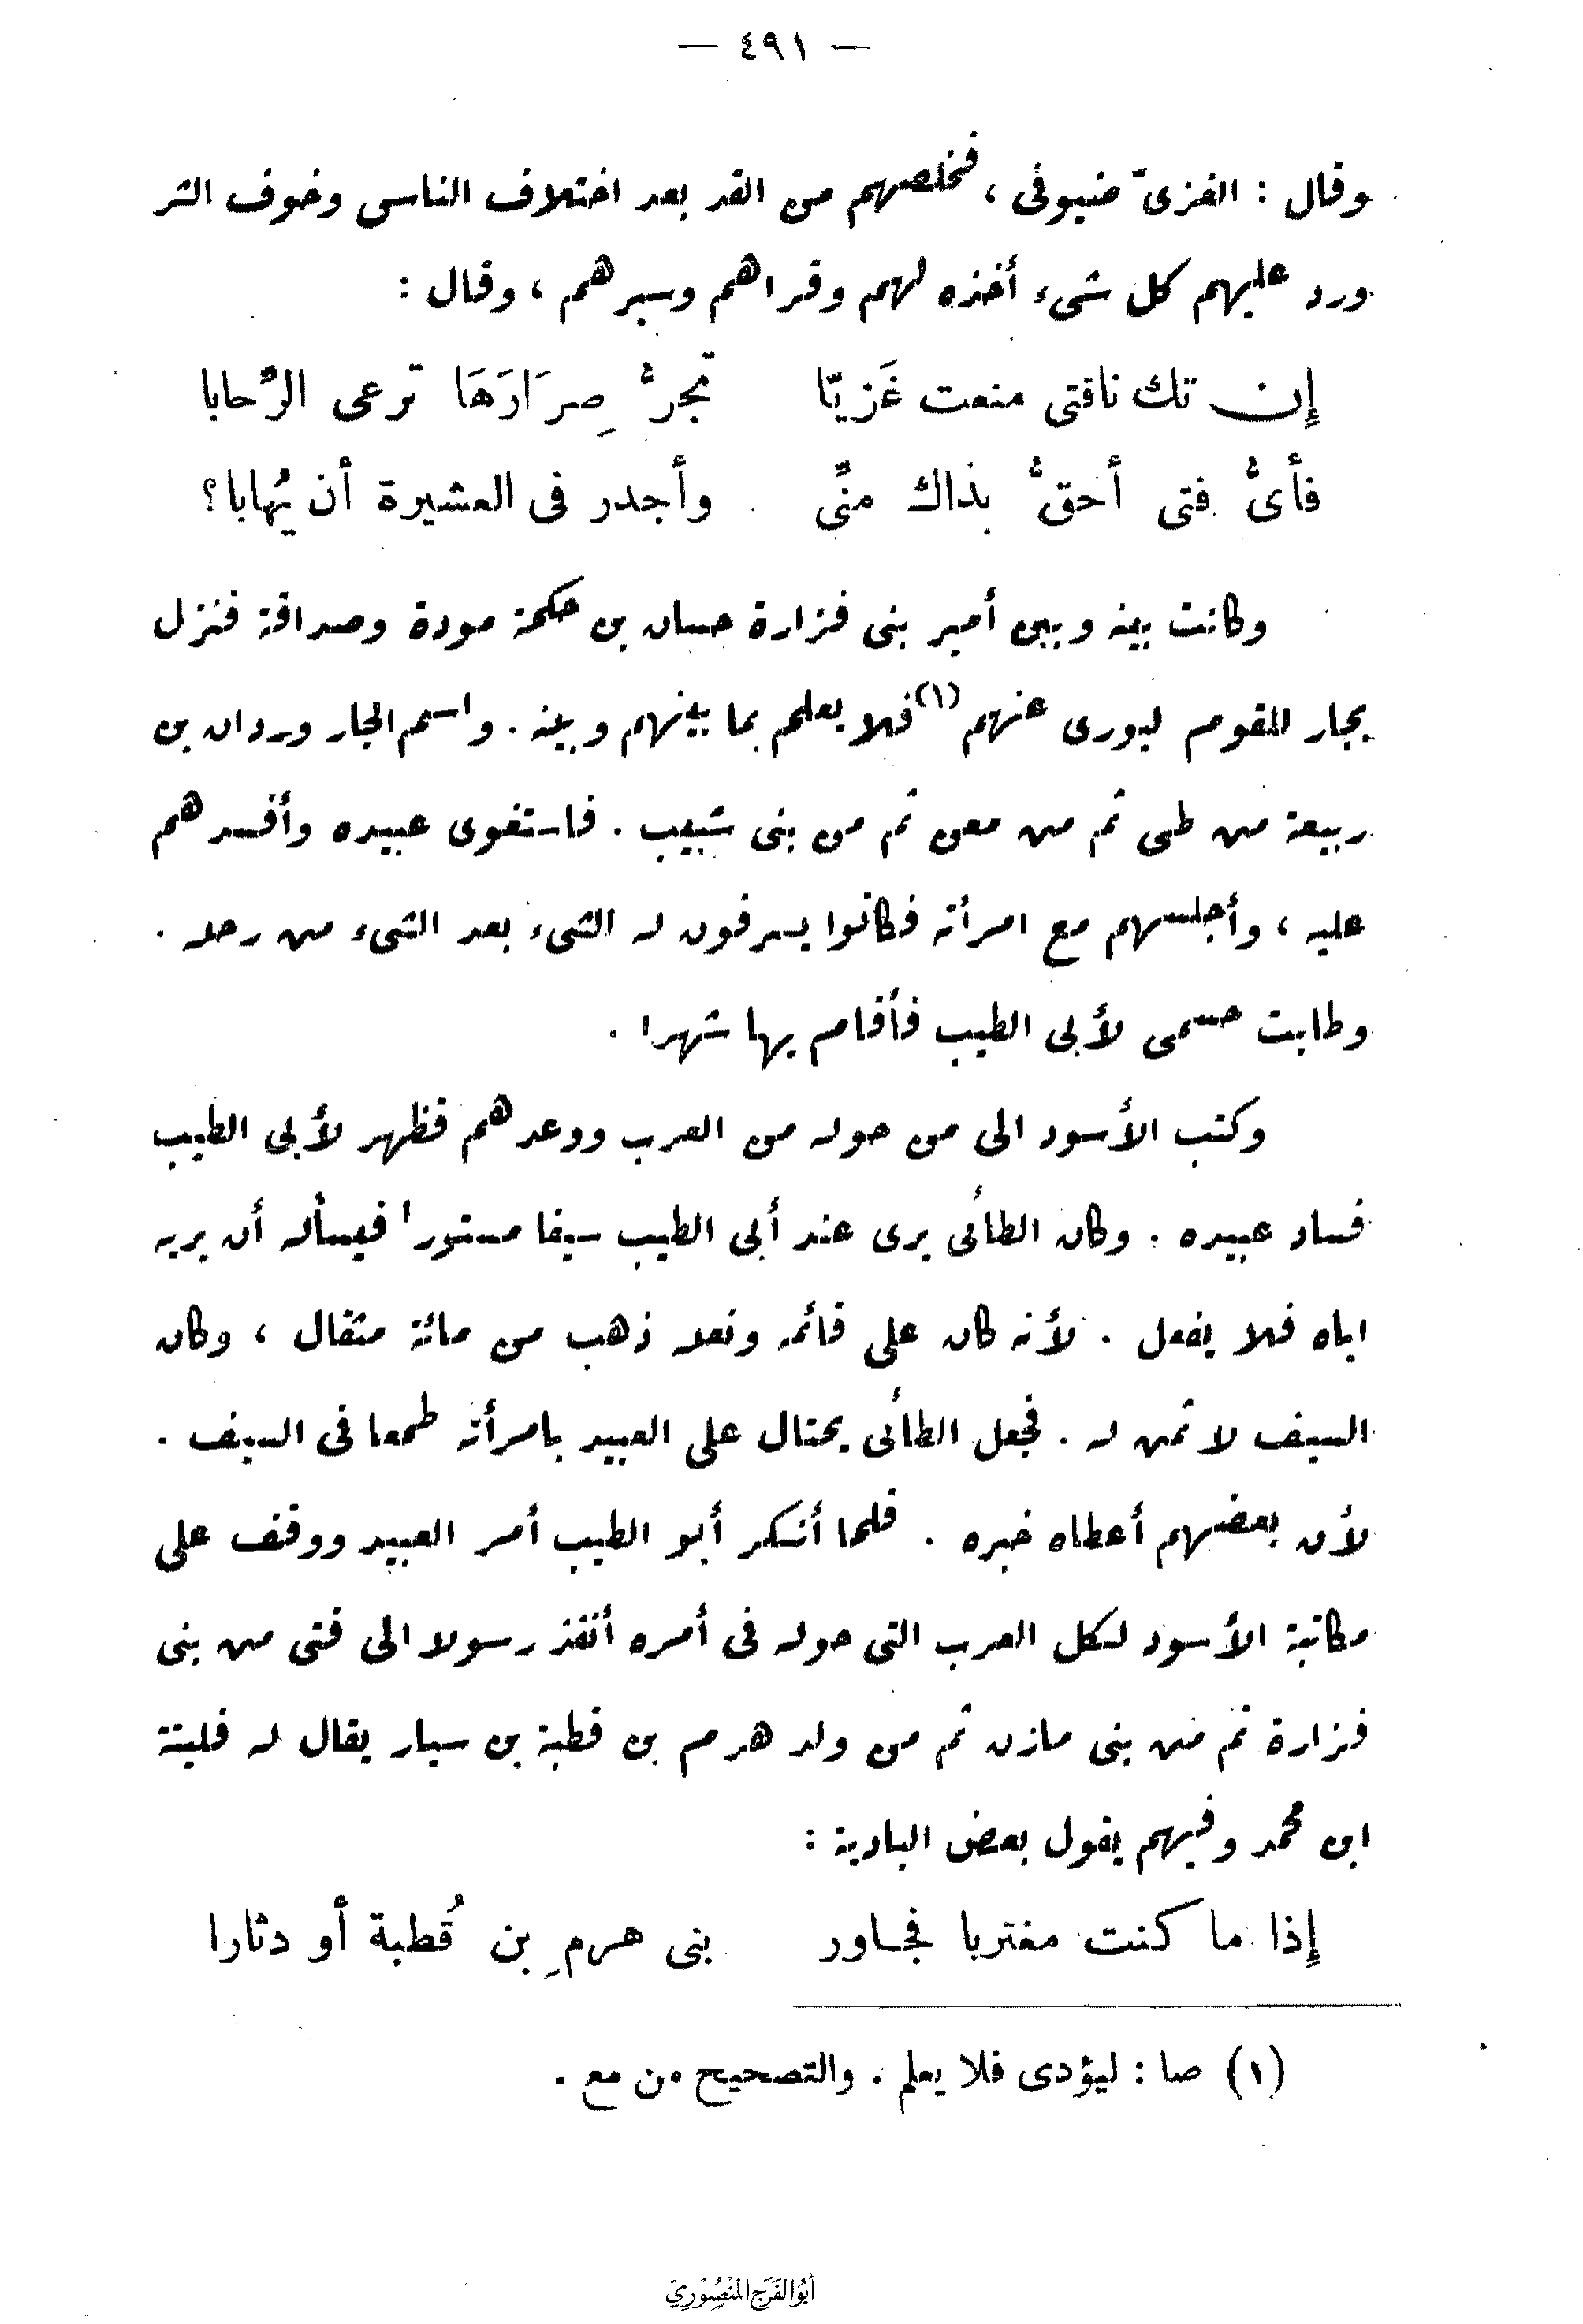 — ٤٩١ —
وقال : الغزىّ ضيوفى ، فخلصهم من الغد بعد اختلاف الناس وخوف الشر
ورد عليهم كل شىء أخذه لهم وقراهم وسيرهم ، وقال :
إِن تك ناقتى منعت غَزيّا تجرُّ صِرَارَهَا ترعى الرِّحابا
فأىُّ فتى أحقُّ بذاك منِّى وأجدر فى العشيرة أن يُهابا؟
وكانت بينه وبين أمير بنى فزارة حسان بن حكمة مودة وصداقة فنزل
بجار للقوم ليورى عنهم (١) فلا يعلم بما بينهم وبينه . واسم الجار وردان بن
ربيعة من طى ثم من معن ثم من بنى شبيب . فاستغوى عبيده وأفسدهم
عليه ، وأجلسهم مع امرأته فكانوا يسرفون له الشىء بعد الشىء من رحله .
وطابت حسمى لأبى الطيب فأقام بها شهرا .
وكتب الأسود الى من حوله من العرب ووعدهم فظهر لأبى الطيب
فساد عبيده . وكان الطائى يرى عند أبى الطيب سيفا مستورا فيسأله أن يريه
اياه فلا يفعل . لأنه كان على قائمه ونعله ذهب من مائة مثقال ، وكان
السيف لا ثمن له . فجعل الطائى يحتال على العبيد بامرأته طمعا فى السيف .
لأن بعضهم أعطاه خبره . فلما أنكر أبو الطيب أمر العبيد ووقف على
مكاتبة الأسود لكل العرب التى حوله فى أمره أنفذ رسولا الى فتى من بنى
فزارة ثم من بنى مازن ثم من ولد هرم بن قطبة بن سيار يقال له فليتة
ابن محمد وفيهم يقول بعض البادية :
إِذا ما كنت مغتربا فجاور بنى هرمِ بن قُطبة أو دثارا
(١) صا : ليؤدى فلا يعلم . والتصحيح من مع .
أبو الفرج المنصوري